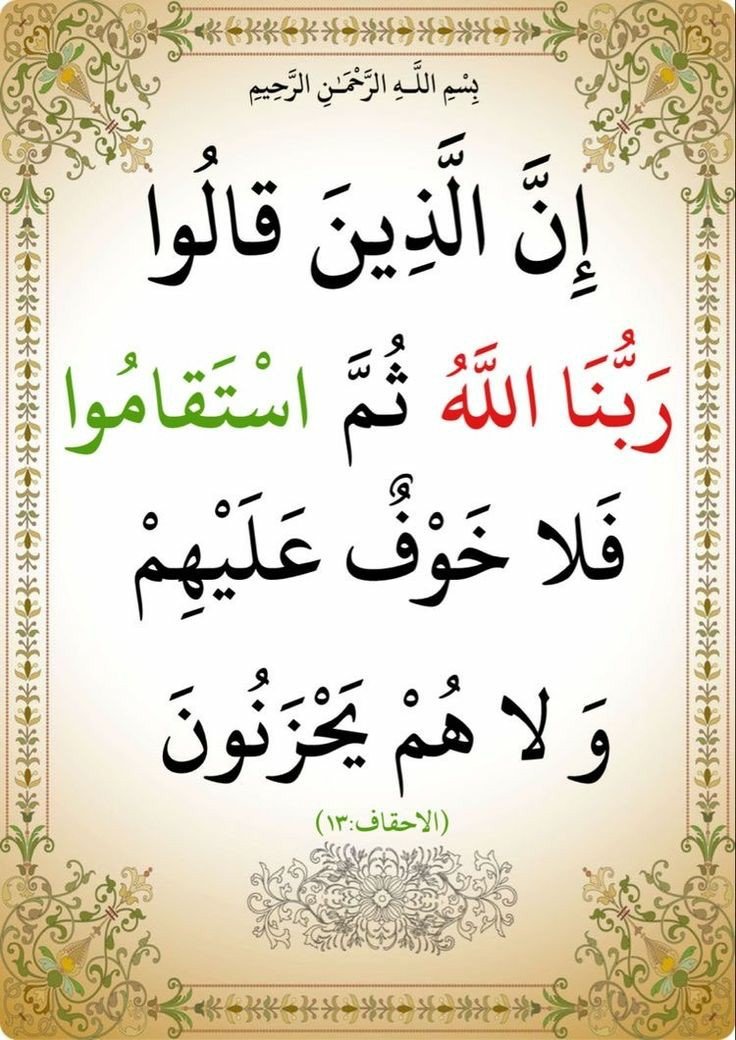 بِسْمِ اللَّـهِ الرَّحْمَـٰنِ الرَّحِيمِ
إِنَّ الَّذِينَ قالُوا
رَبُّنَا اللَّهُ ثُمَّ اسْتَقامُوا
فَلا خَوْفٌ عَلَيْهِمْ
وَ لا هُمْ يَحْزَنُونَ
(الاحقاف:۱۳)